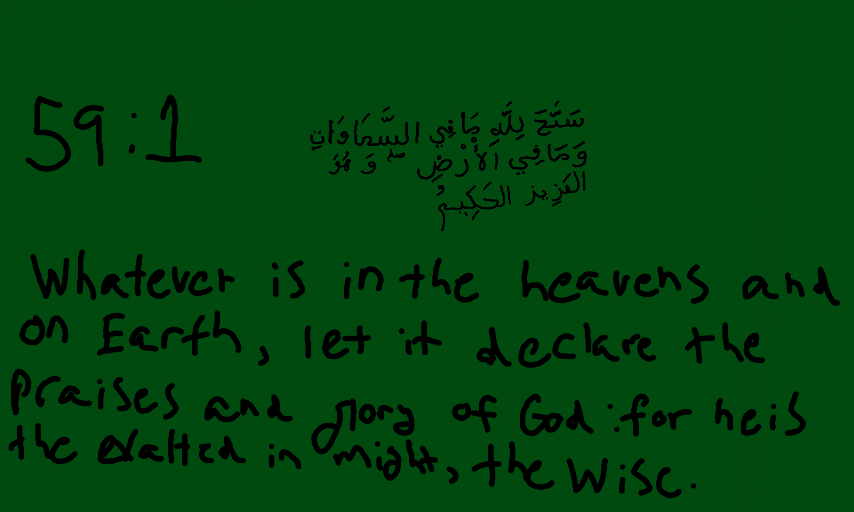 59:1
سَبَّحَ لِلَّهِ مَا فِي السَّمَاوَاتِ
وَمَا فِي الْأَرْضِ ۖ وَهُوَ
العَزِيز الحَكِيمُ
Whatever is in the heavens and
on Earth, let it declare the
praises and glory of God: for he is
the exalted in might, the Wise.